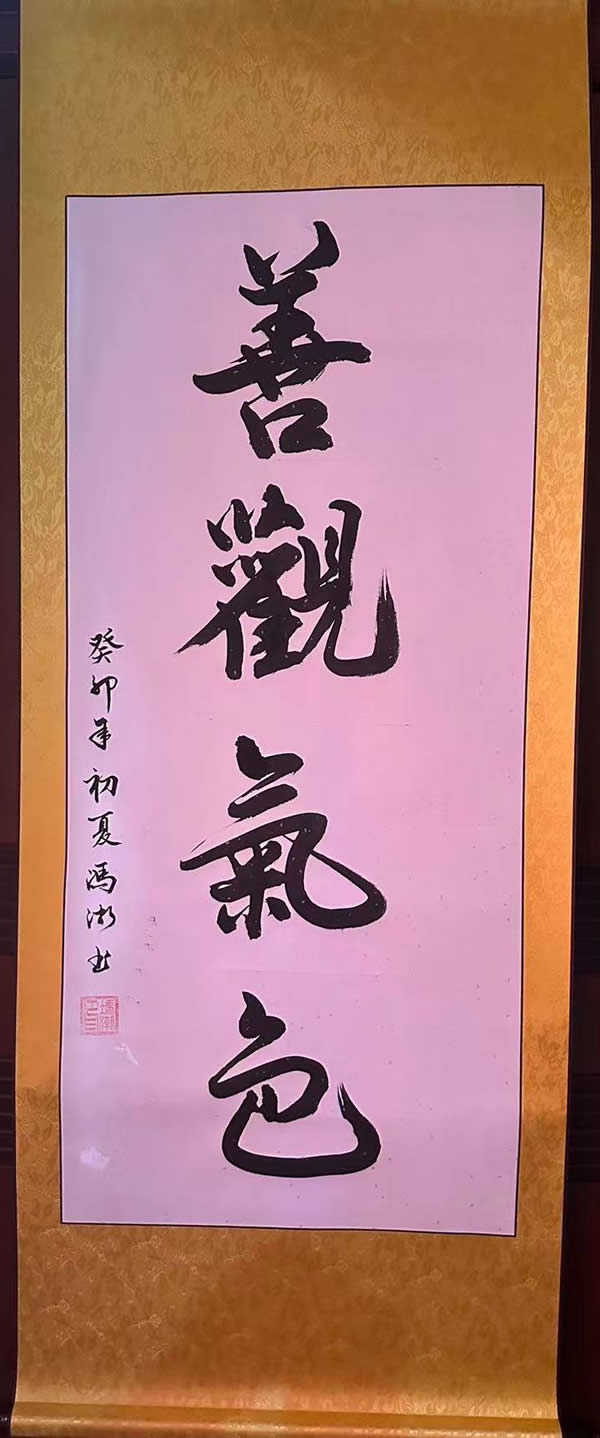 善觀氣色
癸卯年初夏馮湖书